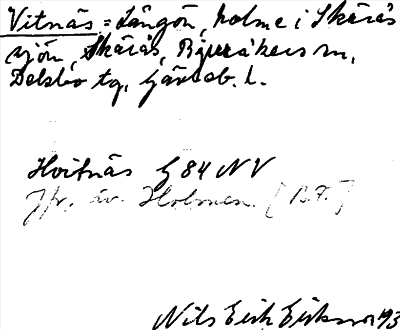 Vitnäs = Långön, holme i Skärås
sjön, Skärås, Bjuråkers sn,
Delsbo tg, Gävleb. l.
Hvitnäs G 84 NV
Jfr. äv. Holmen. [B.F.]
Nils Erik Eriksson 93